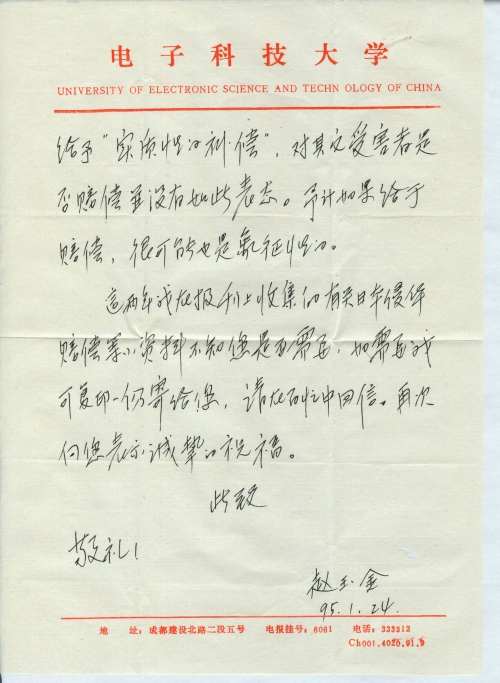 电子科技大学
UNIVERSITY OF ELECTRONIC SCIENCE AND TECHN OLOGY OF CHINA
给予“实质性的补偿”，对其它受害者是
否赔偿虽没有如此表态。予计如果给于
赔偿，很可能也是象征性的。
这两年我在报刊上收集的有关日本侵华
赔偿等的资料不知您是否需要，如需要我
可复印一份寄给您，请在百忙中回信。再次
向您表示诚挚的祝福。
此致
敬礼！
赵玉金
95.1.24.
地 址：成都建设北路二段五号 电报挂号：6061 电话：333312
Ch001.4020.91.9